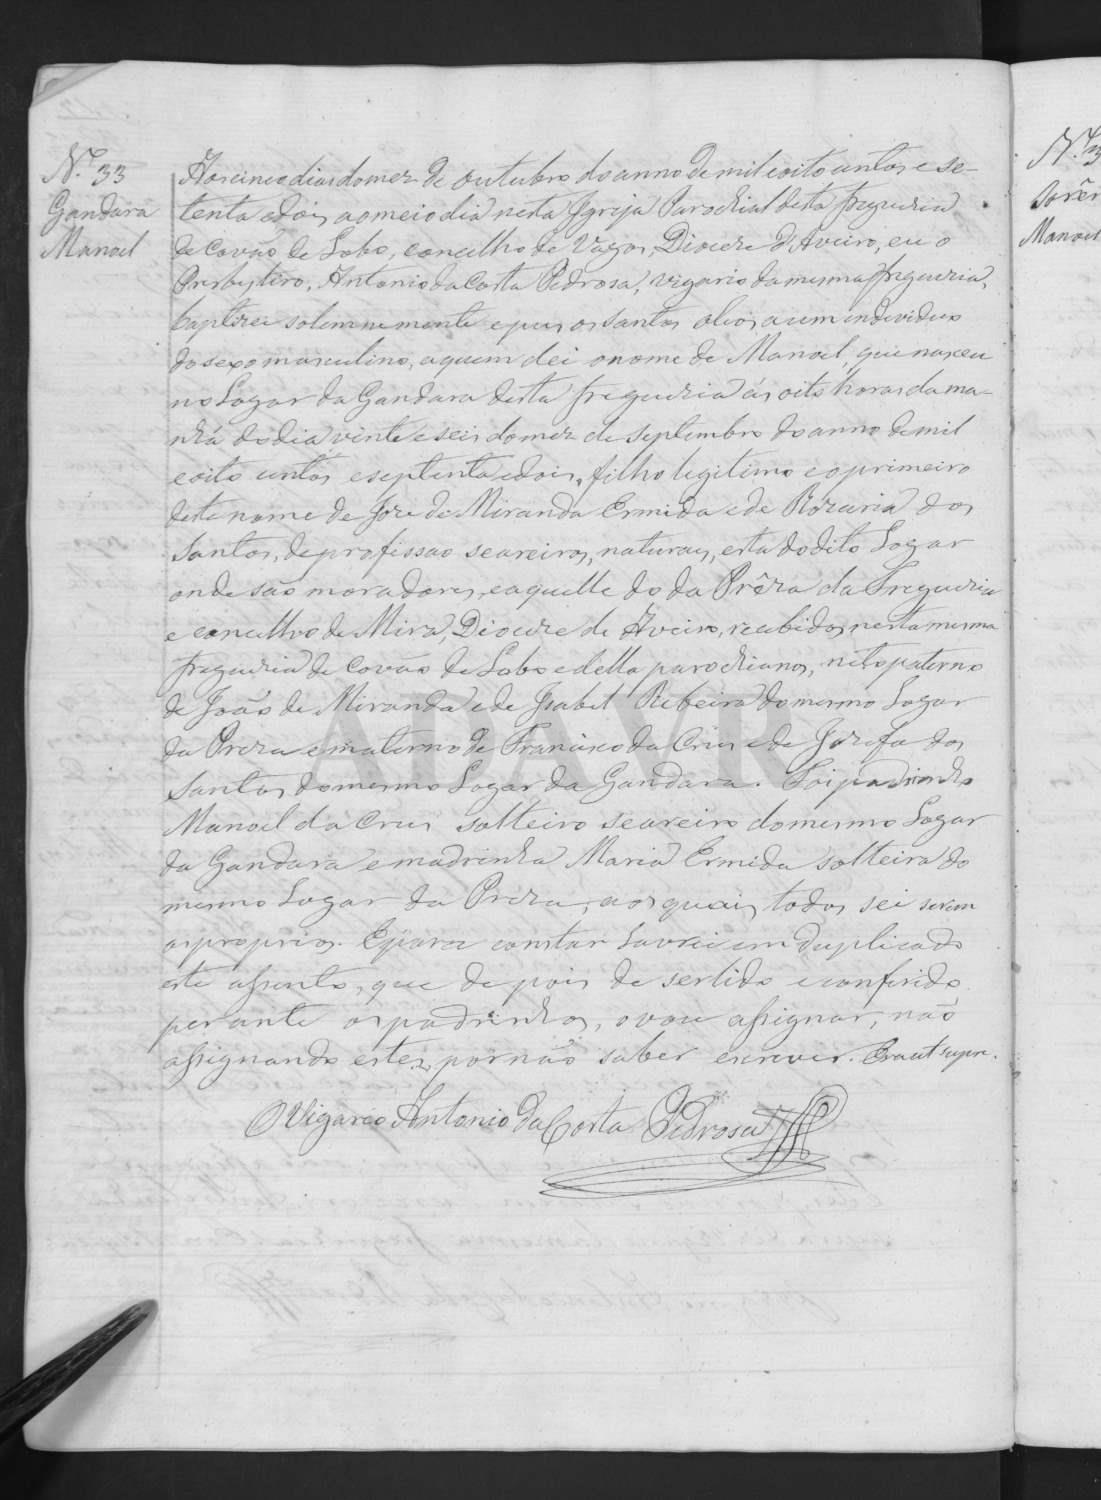 N.º 33
Gandara
Manoel
Aos cinco dias do mez de Outubro do anno de mil e oito centos e se-
tenta e dois ao meio dia nesta Igreja Parochial desta freguezia
de Covão de Lobo, concelho de Vagos, Diocese d'Aveiro, eu o
Presbytero, Antonio da Costa Pedrosa, vigario da mesma freguezia,
baptizei solemnemente e puz os santos oleos a um individuo
do sexo masculino, a quem dei o nome de Manoel, que nasceu
no Logar da Gandara desta freguezia ás oito horas da ma-
nhã do dia vinte e seis do mez de septembro do anno de mil
e oito centos e septenta e dois, filho legitimo e o primeiro
deste nome de Jose de Miranda Ermida e de Rozaria dos
Santos, de profissao seareiros, naturaes, esta do dito Logar
onde são moradores, e aquelle do da Prêza da Freguezia
e concelho de Mira, Diocese de Aveiro, recebidos nesta mesma
freguezia de Covão de Lobo e della parochianos, neto paterno
de João de Miranda e de Isabel Ribeira do mesmo Logar
da Preza e materno de Francisco da Cruz e de Jozefa dos
Santos do mesmo Logar da Gandara. Foi padrinho
Manoel da Cruz solteiro seareiro do mesmo Logar
da Gandara e madrinha Maria Ermida solteira do
mesmo Logar da Preza, aos quais todos sei serem
os proprios. E para constar lavrei em duplicado
este assento, que depois de ser lido e conferido
perante os padrinhos, o vou assignar, não
assignando estes, por não saber escrever. Era ut supra.
O Vigario Antonio da Costa Pedrosa
N.º 3
Manoel
ADAVR